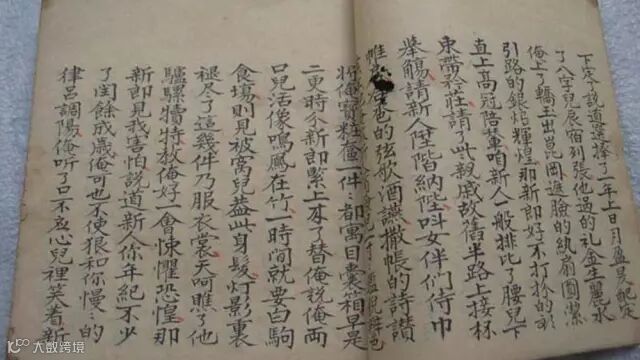 下定了說道選擇了年上日月盈昃配定
了八字兒辰宿列張他過的礼金生麗水
俺上了轎玉出崑岡遮臉的紈扇圓潔
引路的銀燭輝煌那新郎好不打扮的
直上高冠陪輦咱新人一般排比了腰兒下
束帶矜莊請了些親戚故舊半路上接杯
舉觴請新人陞階納陛呌女伴們侍巾
帷 的弦歌酒讌撒帳的詩讚
將俺寶粧奩一件﹕都寓目囊箱早是
二更時分新郎緊上床了替俺說俺兩
口兒活像鳴鳳在竹一時間就要白駒
食場則見被窩兒蓋此身髮灯影裏
褪尽了這幾件乃服衣裳天呵瞧了他
驢騾犢特教俺好一會悚懼恐惶那
新郎見我害怕說道新人你年紀不少
了閏餘成歲俺可也不使狠和你慢﹕的
律呂調陽俺听了口不应心兒裡笑着新
大数跨境